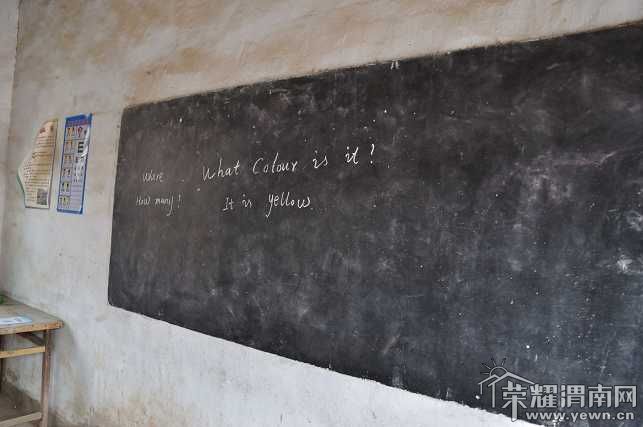 Where
How many?
What Colour is it?
It is yellow
荣耀渭南网
www.yewn.cn